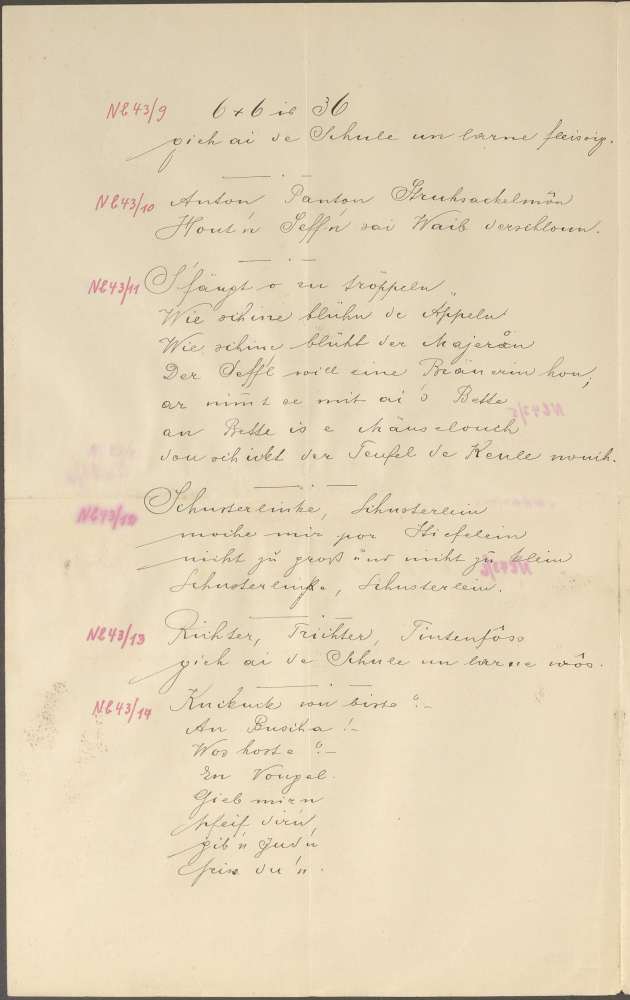 NL43/9 6 + 6 is 36
gieh ai de Schule un larne fleissig.
NL43/10 Anton Panton Struhsackelmôn
Hout'n Seff'n sai Waib derschloun.
NL43/11 S'fängt o zu tröppeln
Wie schine blühn de Äppeln
Wie schine blüht der Majerån
Der Seff'l will eine Bräuerin hon,
ar nimmt se mit ai's Bette
an Bette is e Mäuselouch
dou schickt der Teufel de Keule nouch.
NL43/12 Schusterlinke, Schusterlein
moche mir por Stiefelein
nicht zu groß und nicht zu klein
Schusterlinke, Schusterlein.
NL43/13 Richter, Trichter, Tintenfôss
gieh ai de Schule un larne wôs.
NL43/14 Kuckuck wu biste?-
An Buscha!-
Wos hoste?-
En Vougel.
Gieb mirn
pfeif dirn
gib'n Jud'n
friss du'n.